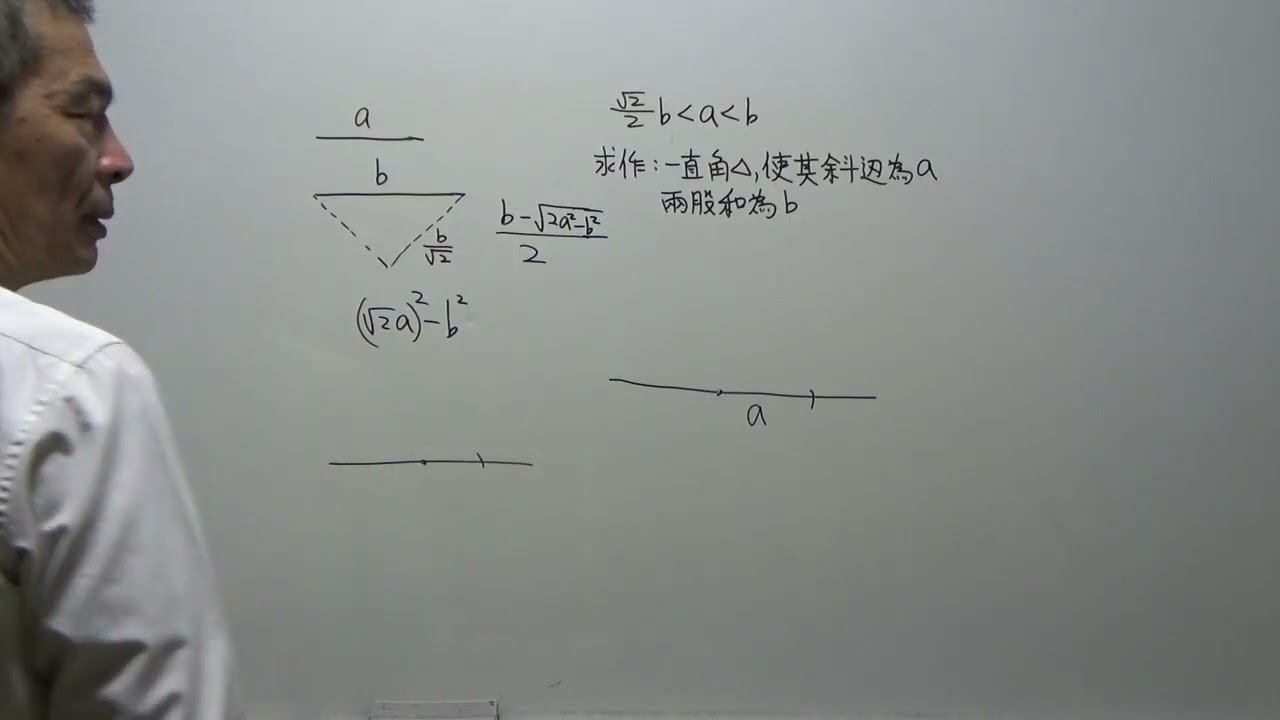 a
b
b/√2
(b-√(2a²-b²))/2
(√2a)²-b²
√2/2 b<a<b
求作:一直角△,使其斜边為a
兩股和為b
a